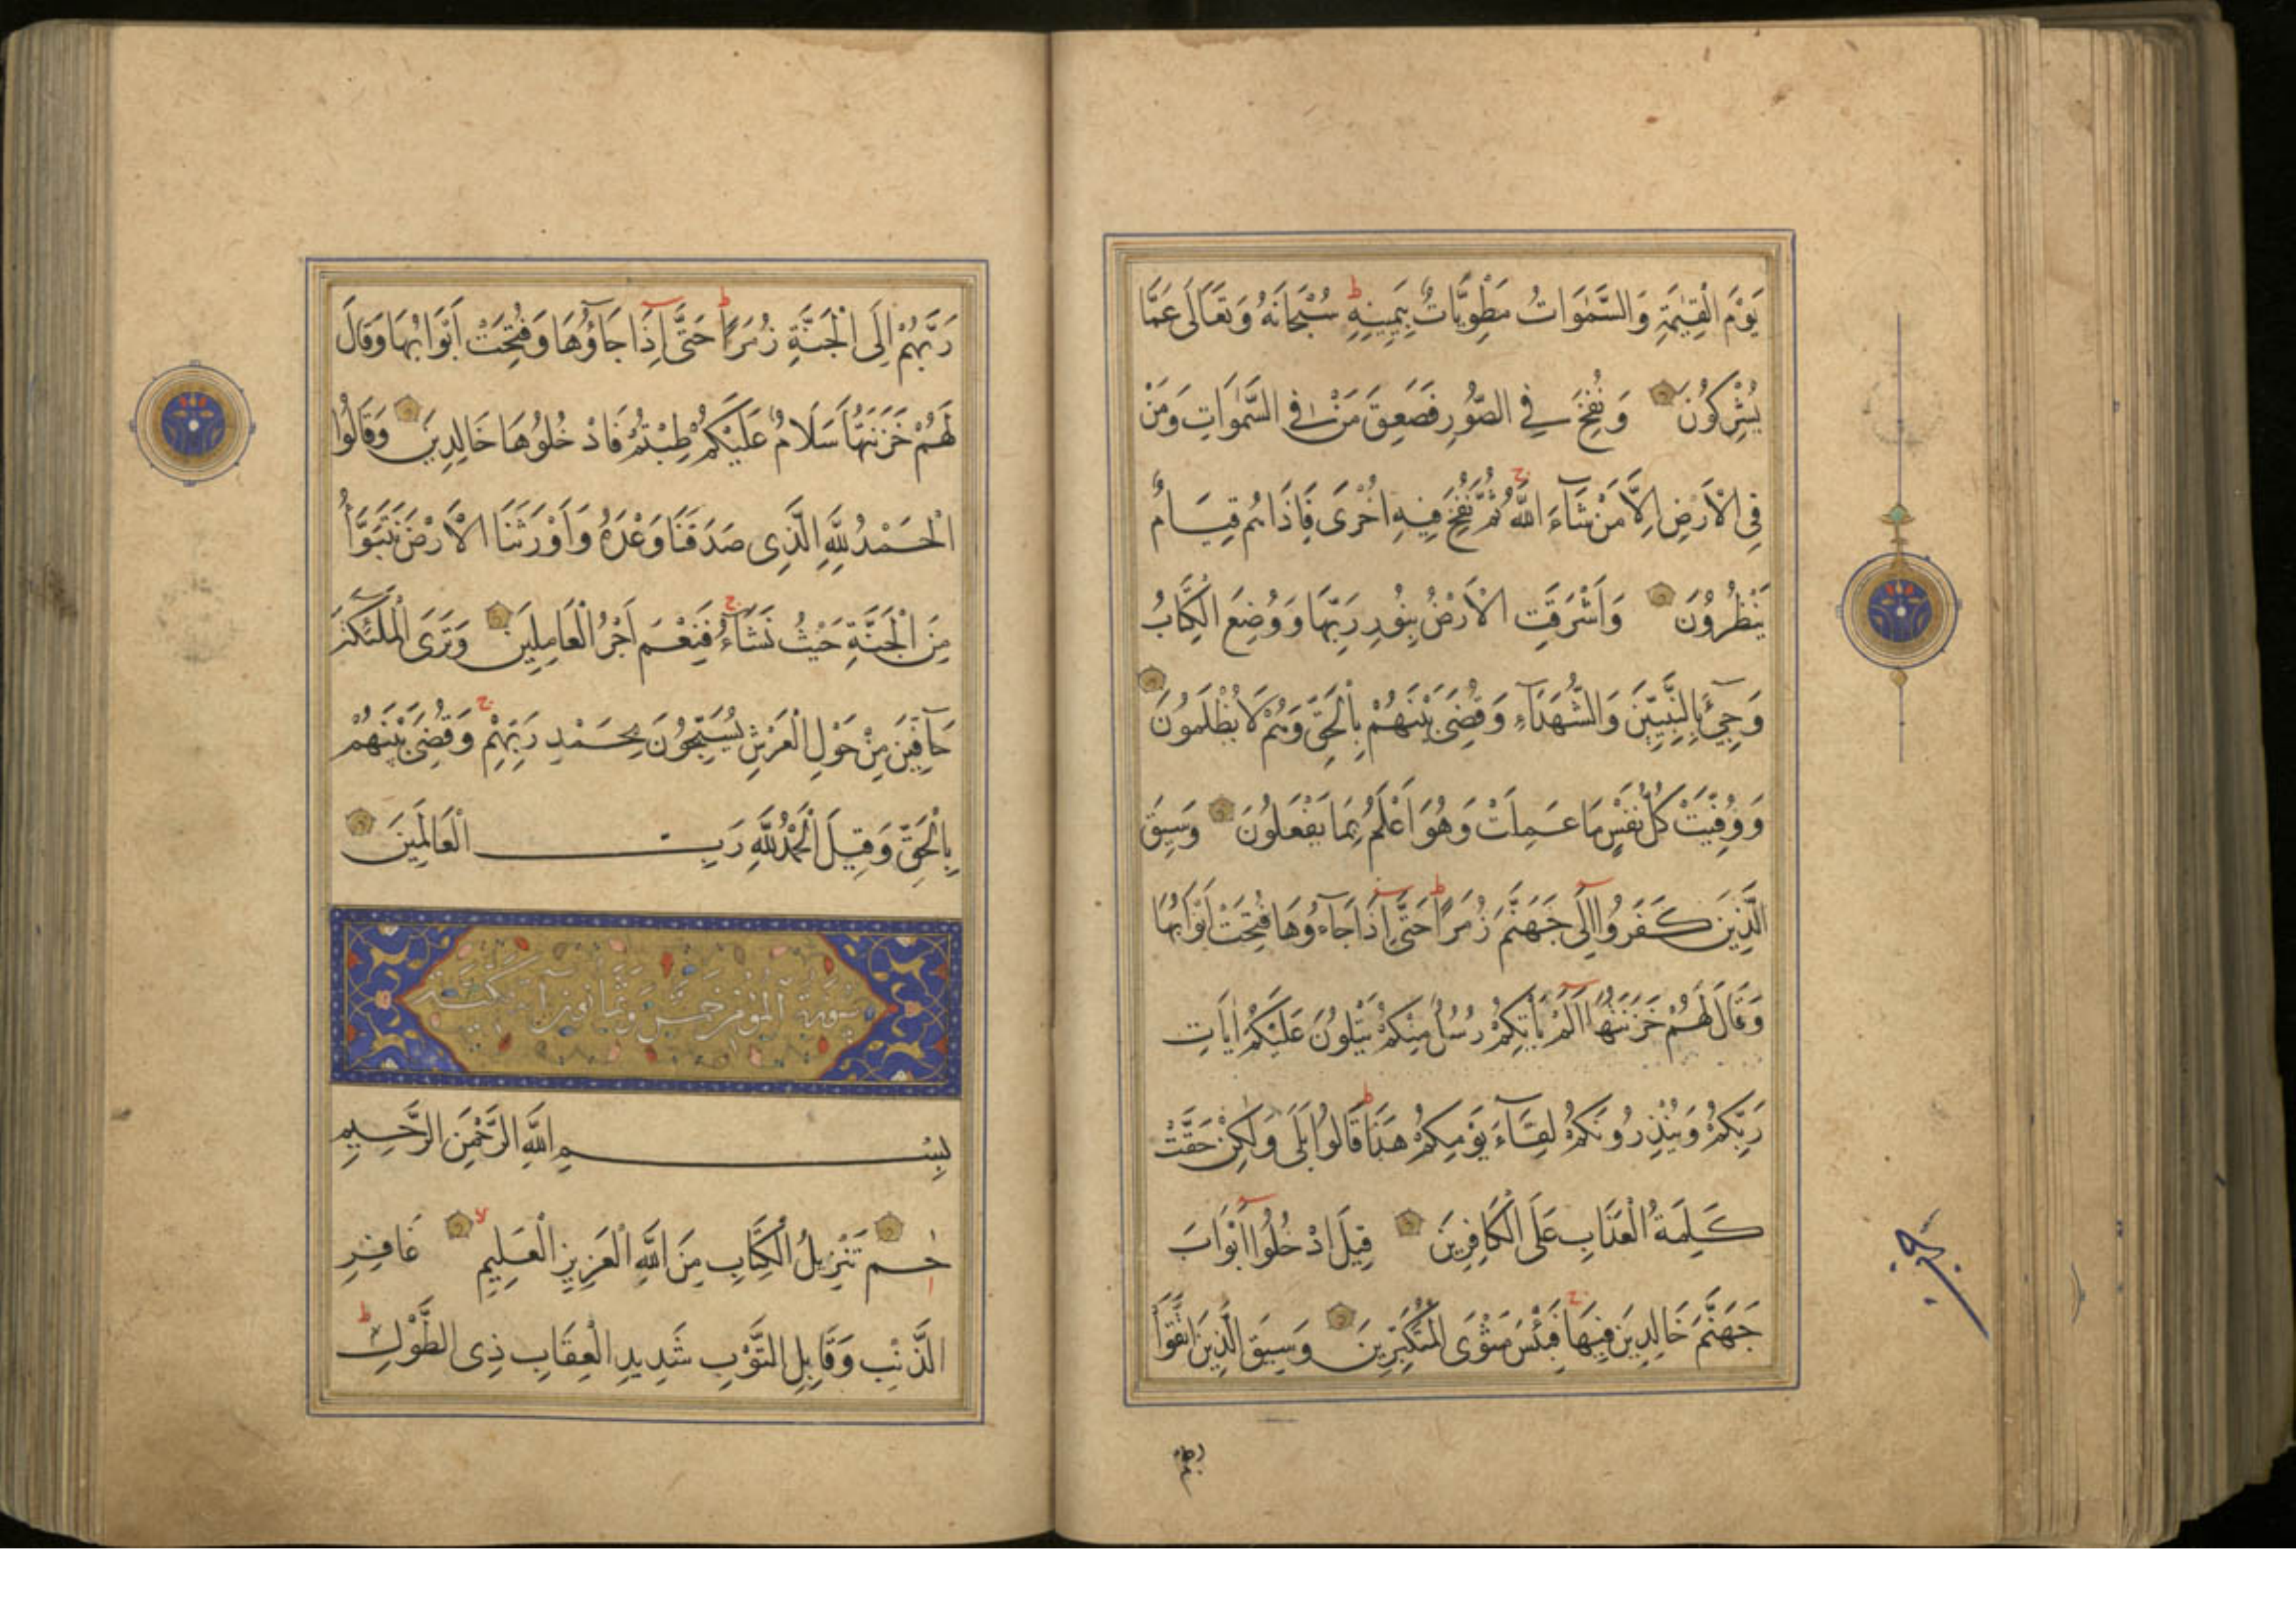 يَوْمَ الْقِيٰمَةِ وَالسَّمٰوَاتُ مَطْوِيَّاتٌ بِيَمِينِهِ ط سُبْحَانَهُ وَتَعَالَى عَمَّا
يُشْرِكُونَ وَنُفِخَ فِي الصُّورِ فَصَعِقَ مَنْ فِي السَّمٰوَاتِ وَمَنْ
فِي الْاَرْضِ اِلَّا مَنْ شَآءَ اللّٰهُ ج ثُمَّ نُفِخَ فِيهِ اُخْرَى فَاِذَا هُمْ قِيَامٌ
يَنْظُرُونَ وَاَشْرَقَتِ الْاَرْضُ بِنُورِ رَبِّهَا وَوُضِعَ الْكِتَابُ
وَجِيْءَ بِالنَّبِيِّينَ وَالشُّهَدَآءِ وَقُضِيَ بَيْنَهُمْ بِالْحَقِّ وَهُمْ لَا يُظْلَمُونَ
وَوُفِّيَتْ كُلُّ نَفْسٍ مَا عَمِلَتْ وَهُوَ اَعْلَمُ بِمَا يَفْعَلُونَ وَسِيقَ
الَّذِينَ كَفَرُوا اِلَى جَهَنَّمَ زُمَرًا ط حَتَّى اِذَا جَآءُوهَا فُتِحَتْ اَبْوَابُهَا
وَقَالَ لَهُمْ خَزَنَتُهَا اَلَمْ يَاْتِكُمْ رُسُلٌ مِنْكُمْ يَتْلُونَ عَلَيْكُمْ اٰيَاتِ
رَبِّكُمْ وَيُنْذِرُونَكُمْ لِقَآءَ يَوْمِكُمْ هٰذَا ط قَالُوا بَلَى وَلٰكِنْ حَقَّتْ
كَلِمَةُ الْعَذَابِ عَلَى الْكَافِرِينَ قِيلَ ادْخُلُوا اَبْوَابَ
جَهَنَّمَ خَالِدِينَ فِيهَا ج فَبِئْسَ مَثْوَى الْمُتَكَبِّرِينَ وَسِيقَ الَّذِينَ اتَّقَوْا
رَبَّهُمْ اِلَى الْجَنَّةِ زُمَرًا ط حَتَّى اِذَا جَآؤُهَا وَفُتِحَتْ اَبْوَابُهَا وَقَالَ
لَهُمْ خَزَنَتُهَا سَلَامٌ عَلَيْكُمْ طِبْتُمْ فَادْخُلُوهَا خَالِدِينَ وَقَالُوا
الْحَمْدُ لِلّٰهِ الَّذِي صَدَقَنَا وَعْدَهُ وَاَوْرَثَنَا الْاَرْضَ نَتَبَوَّاُ
مِنَ الْجَنَّةِ حَيْثُ نَشَآءُ ج فَنِعْمَ اَجْرُ الْعَامِلِينَ وَتَرَى الْمَلٰٓئِكَةَ
حَآفِّينَ مِنْ حَوْلِ الْعَرْشِ يُسَبِّحُونَ بِحَمْدِ رَبِّهِمْ ج وَقُضِيَ بَيْنَهُمْ
بِالْحَقِّ وَقِيلَ الْحَمْدُ لِلّٰهِ رَبِّ الْعَالَمِينَ
سورة المؤمن خمس وثمانون آية مكية
بِسْمِ اللّٰهِ الرَّحْمٰنِ الرَّحِيمِ
حٰم تَنْزِيلُ الْكِتَابِ مِنَ اللّٰهِ الْعَزِيزِ الْعَلِيمِ لا غَافِرِ
الذَّنْبِ وَقَابِلِ التَّوْبِ شَدِيدِ الْعِقَابِ ذِي الطَّوْلِ ط